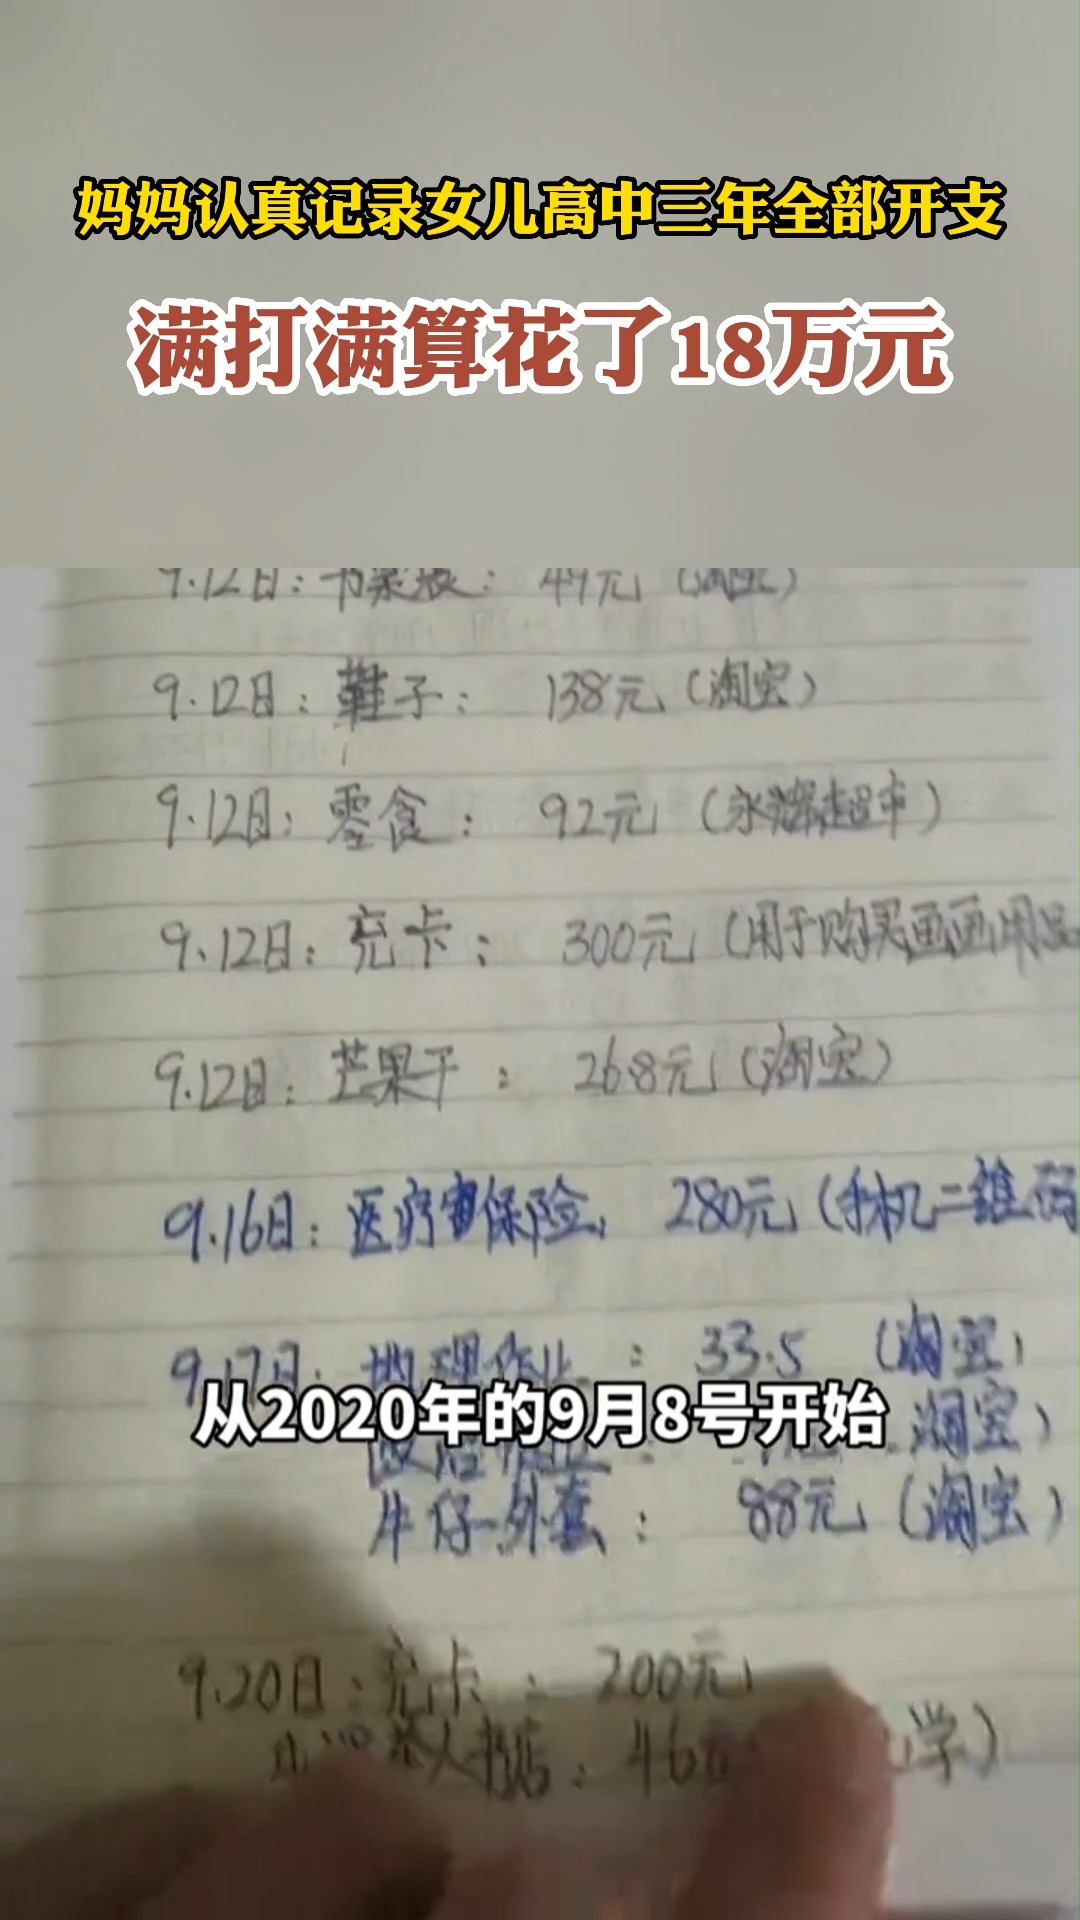 妈妈认真记录女儿高中三年全部开支
满打满算花了18万元
9.12日：书桌 49元（淘宝）
9.12日：鞋子： 138元（淘宝）
9.12日：零食： 92元（永辉超市）
9.12日：充卡： 300元（用于购买画画用品
9.12日：芒果干： 26.8元（淘宝）
9.16日：医疗保险， 280元（手机二维码
9.17日：地理作业： 33.5（淘宝）
从2020年的9月8号开始
淘宝）
牛仔外套： 88元（淘宝）
9.20日：充卡： 200元
书店：46 学）